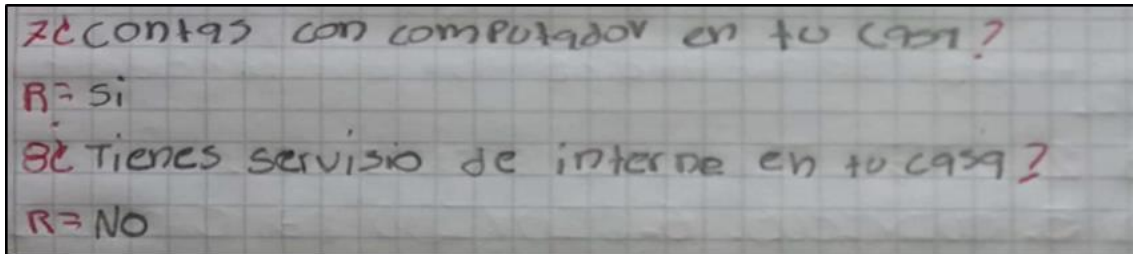 7¿contas con computador en tu casa?
R= Si
8¿Tienes servisio de interne en tu casa?
R= NO